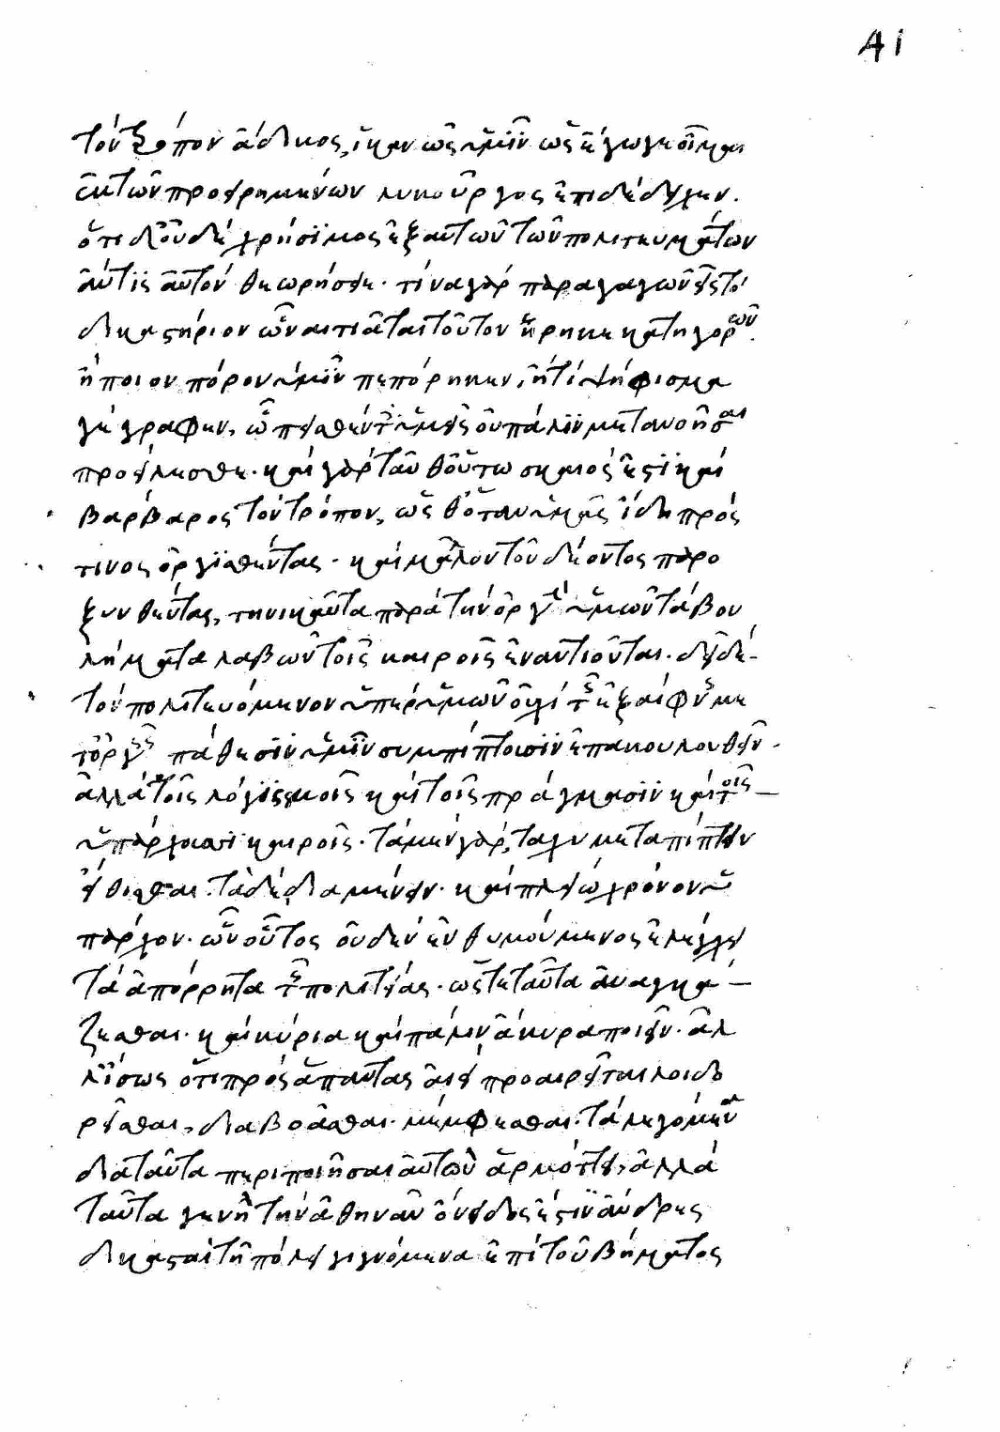 41
τὸν τρόπον ἄδικος, ἱκανῶς ὑμῖν ὡς ἔγωγε οἶμαι
ἐκ τῶν προειρημένων λυκοῦργος ἐπιδέδειχεν.
ὅτι δ' οὐδὲ χρήσιμος ἐξ αὐτῶν τῶν πολιτευμάτων
ἄν τις αὐτὸν θεωρήσειε. τίνα γὰρ παραγαγὼν εἰς τὸ
δικαστήριον ὧν αἰτιᾶται τοῦτον ᾕρηκε κατηγορῶν.
ἢ ποῖον πόρον ὑμῖν πεπόρηκεν, ἢ τί ψήφισμα
γέγραφεν, ᾧ πεισθέντες ὑμεῖς οὐ πάλιν μετανοῆσαι
προείλεσθε. καὶ γὰρ ταῦθ' οὕτω σκαιός ἐστι καὶ
βάρβαρος τὸν τρόπον, ὥσθ' ὅταν ὑμᾶς ἴδη πρός
τινος ὀργισθέντας. καὶ μᾶλλον τοῦ δέοντος παρο
ξυνθέντας, τηνικαῦτα παρὰ τὴν ὀργὴν ὑμῶν τὰ βου
λήματα λαβὼν τοῖς καιροῖς ἐναντιοῦται. δεῖ δὲ
τὸν πολιτευόμενον ὑπὲρ ὑμῶν οὐχὶ τοῖς ἐξαίφνης με
τ' ὀργῆς πάθεσιν ὑμῖν συμπίπτουσιν ἐπακολουθεῖν.
ἀλλὰ τοῖς λογισμοῖς καὶ τοῖς πράγμασιν καὶ τοῖς
ὑπάρχουσι καιροῖς. τὰ μὲν γὰρ, ταχὺ μεταπίπτειν
εἴθισται. τὰ δὲ, διαμένειν. καὶ πλείω χρόνον ὑ
πάρχον. ὧν οὗτος οὐδὲν ἐνθυμούμενος ἐλέγχει
τὰ ἀπόρρητα τῆς πολιτείας. ὥστε ταῦτα ἀναγκά
ζεσθαι. καὶ κύρια καὶ πάλιν ἄκυρα ποιεῖν. ἀλ
λ' ἴσως ὅτι πρὸς ἅπαντας ἀεὶ προαιρεῖται λοιδο
ρεῖσθαι, διαβοᾶσθαι. μέμφεσθαι. τὰ λεγόμενα
διὰ ταῦτα περιποιῆσαι αὐτὸν ἁρμόττει, ἀλλὰ
ταῦτα γε νὴ τὴν ἀθηνᾶν ὄνειδός ἐστιν ἄνδρες
δικασταὶ τῆ πόλει γιγνόμενα ἐπὶ τοῦ βήματος